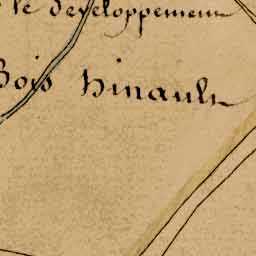 le Developpement
Bois hinault